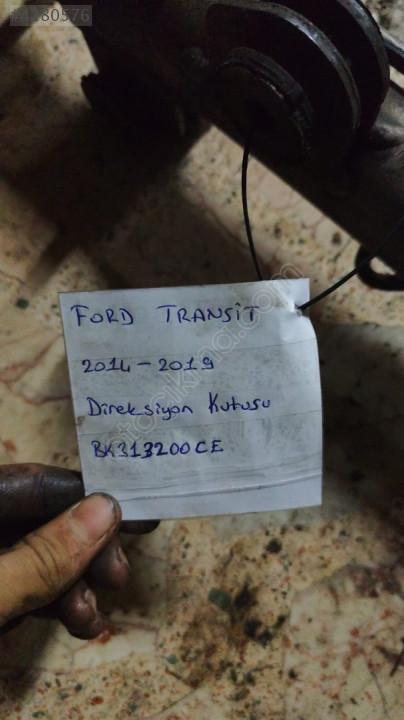 #4180576
FORD TRANSİT
2014-2019
Direksiyon Kutusu
BK313200CE
otocikma.com